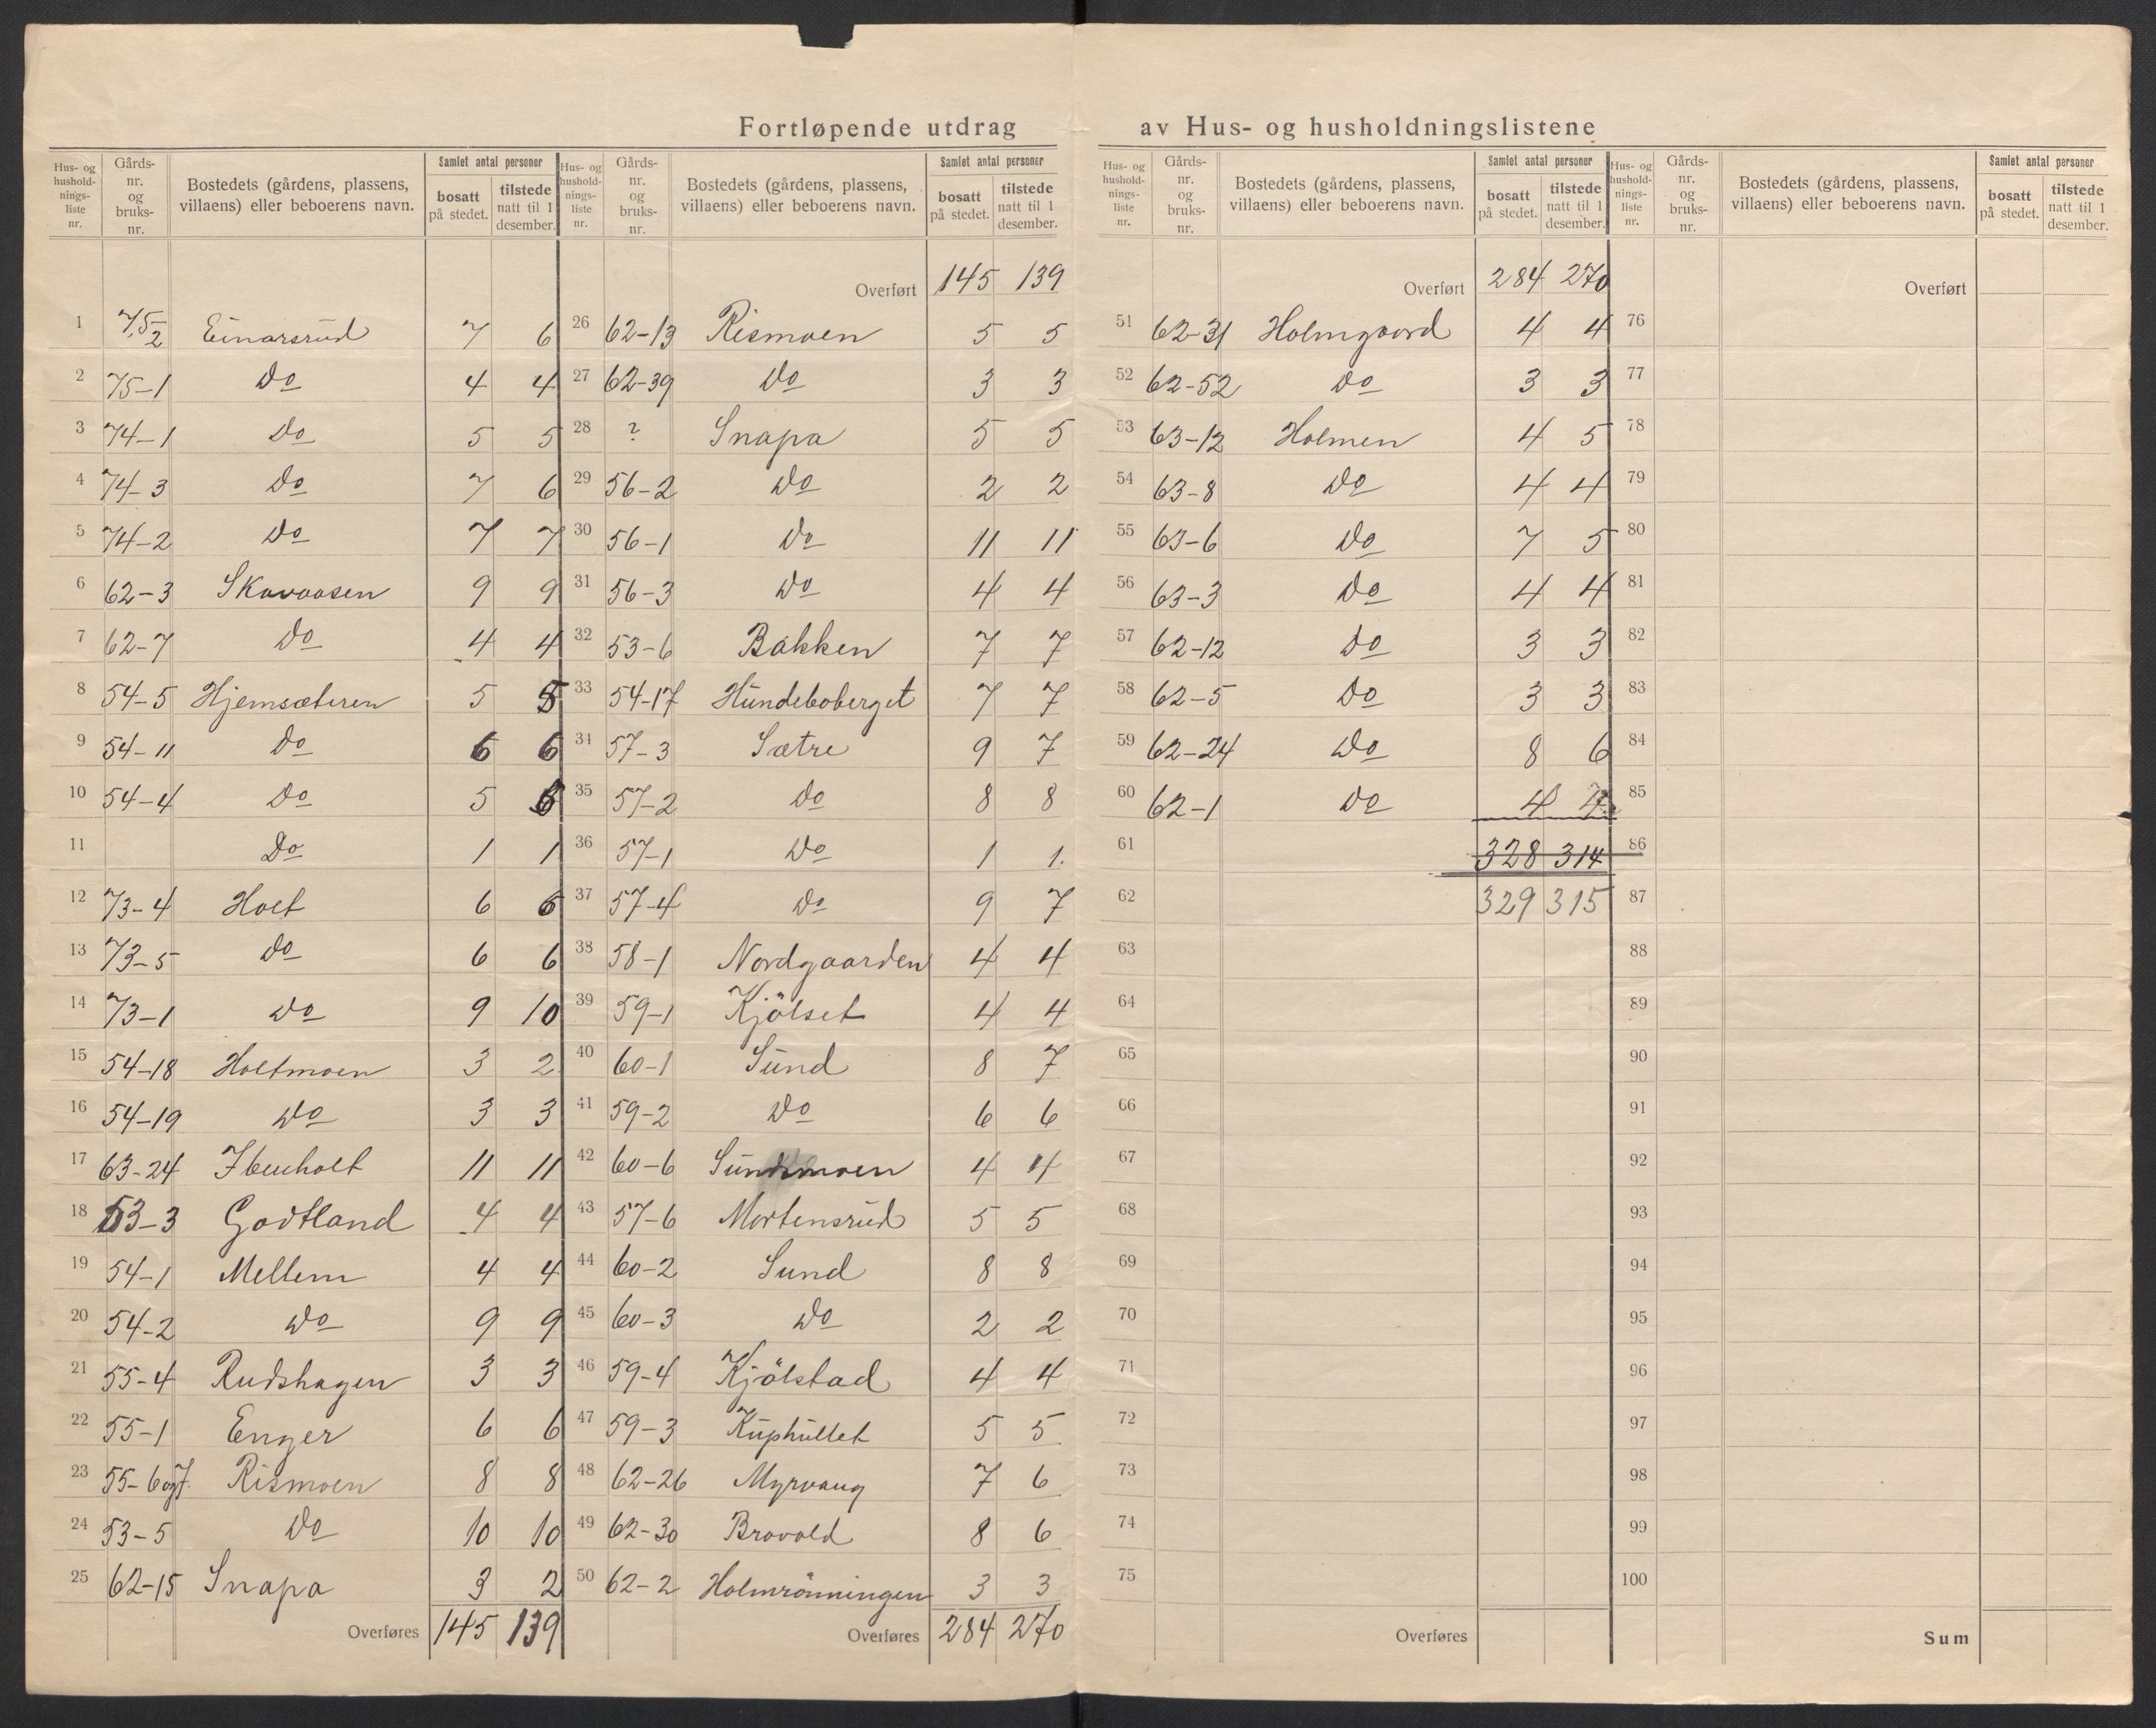 Fortløpende utdrag av Hus- og husholdningslistene
Hus- og husholdnings-liste nr. | Gårds-nr. og bruks-nr. | Bostedets (gårdens, plassens, villaens) eller beboerens navn. | Samlet antal personer | bosatt på stedet. | tilstede natt til 1 desember.
1 75-2 Einarsrud 7 6
2 75-1 Do 4 4
3 74-1 Do 5 5
4 74-3 Do 7 6
5 74-2 Do 7 7
6 62-3 Skavaasen 9 9
7 62-7 Do 4 4
8 54-5 Hjemsæteren 5 5
9 54-11 Do 6 6
10 54-4 Do 5
11 Do 1 1
12 73-4 Holt 6 6
13 73-5 Do 6 6
14 73-1 Do 9 10
15 54-18 Holtmoen 3 2
16 54-19 Do 3 3
17 63-24 11 11
18 53-3 Godtland 4 4
19 54-1 Mellem 4 4
20 54-2 Do 9 9
21 55-4 Rudshagen 3 3
22 55-1 Enger 6 6
23 55-6 og 7 Rismoen 8 8
24 53-5 Do 10 10
25 62-15 Snapa 3 2
Overføres 145 139
Hus- og husholdnings-liste nr. | Gårds-nr. og bruks-nr. | Bostedets (gårdens, plassens, villaens) eller beboerens navn. | Samlet antal personer | bosatt på stedet. | tilstede natt til 1 desember.
Overført 145 139
26 62-13 Rismoen 5 5
27 62-39 Do 3 3
28 ? Snapa 5 5
29 56-2 Do 2 2
30 56-1 Do 11 11
31 56-3 Do 4 4
32 53-6 Bakken 7 7
33 54-17 Hundeboberget 7 7
34 57-3 Sætre 9 7
35 57-2 Do 8 8
36 57-1 Do 1 1.
37 57-4 Do 9 7
38 58-1 Nordgaarden 4 4
39 59-1 Kjölset 4 4
40 60-1 Sund 8 7
41 59-2 Do 6 6
42 60-6 Sundmoen 4 4
43 57-6 Mortensrud 5 5
44 60-2 Sund 8 8
45 60-3 Do 2 2
46 59-4 Kjölstad 4 4
47 59-3 Kuphullet 5 5
48 62-26 Myrvang 7 6
49 62-30 Brovold 8 6
50 62-2 Holmrönningen 3 3
Overføres 284 270
Hus- og husholdnings-liste nr. | Gårds-nr. og bruks-nr. | Bostedets (gårdens, plassens, villaens) eller beboerens navn. | Samlet antal personer | bosatt på stedet. | tilstede natt til 1 desember.
Overført 284 270
51 62-31 Holmgaard 4 4
52 62-52 Do 3 3
53 63-12 Holmen 4 5
54 63-8 Do 4 4
55 63-6 Do 7 5
56 63-3 Do 4 4
57 62-12 Do 3 3
58 62-5 Do 3 3
59 62-24 Do 8 6
60 62-1 Do 4 4
61 328 314
62 329 315
63
64
65
66
67
68
69
70
71
72
73
74
75
Overføres
Hus- og husholdnings-liste nr. | Gårds-nr. og bruks-nr. | Bostedets (gårdens, plassens, villaens) eller beboerens navn. | Samlet antal personer | bosatt på stedet. | tilstede natt til 1 desember.
Overført
76
77
78
79
80
81
82
83
84
85
86
87
88
89
90
91
92
93
94
95
96
97
98
99
100
Sum